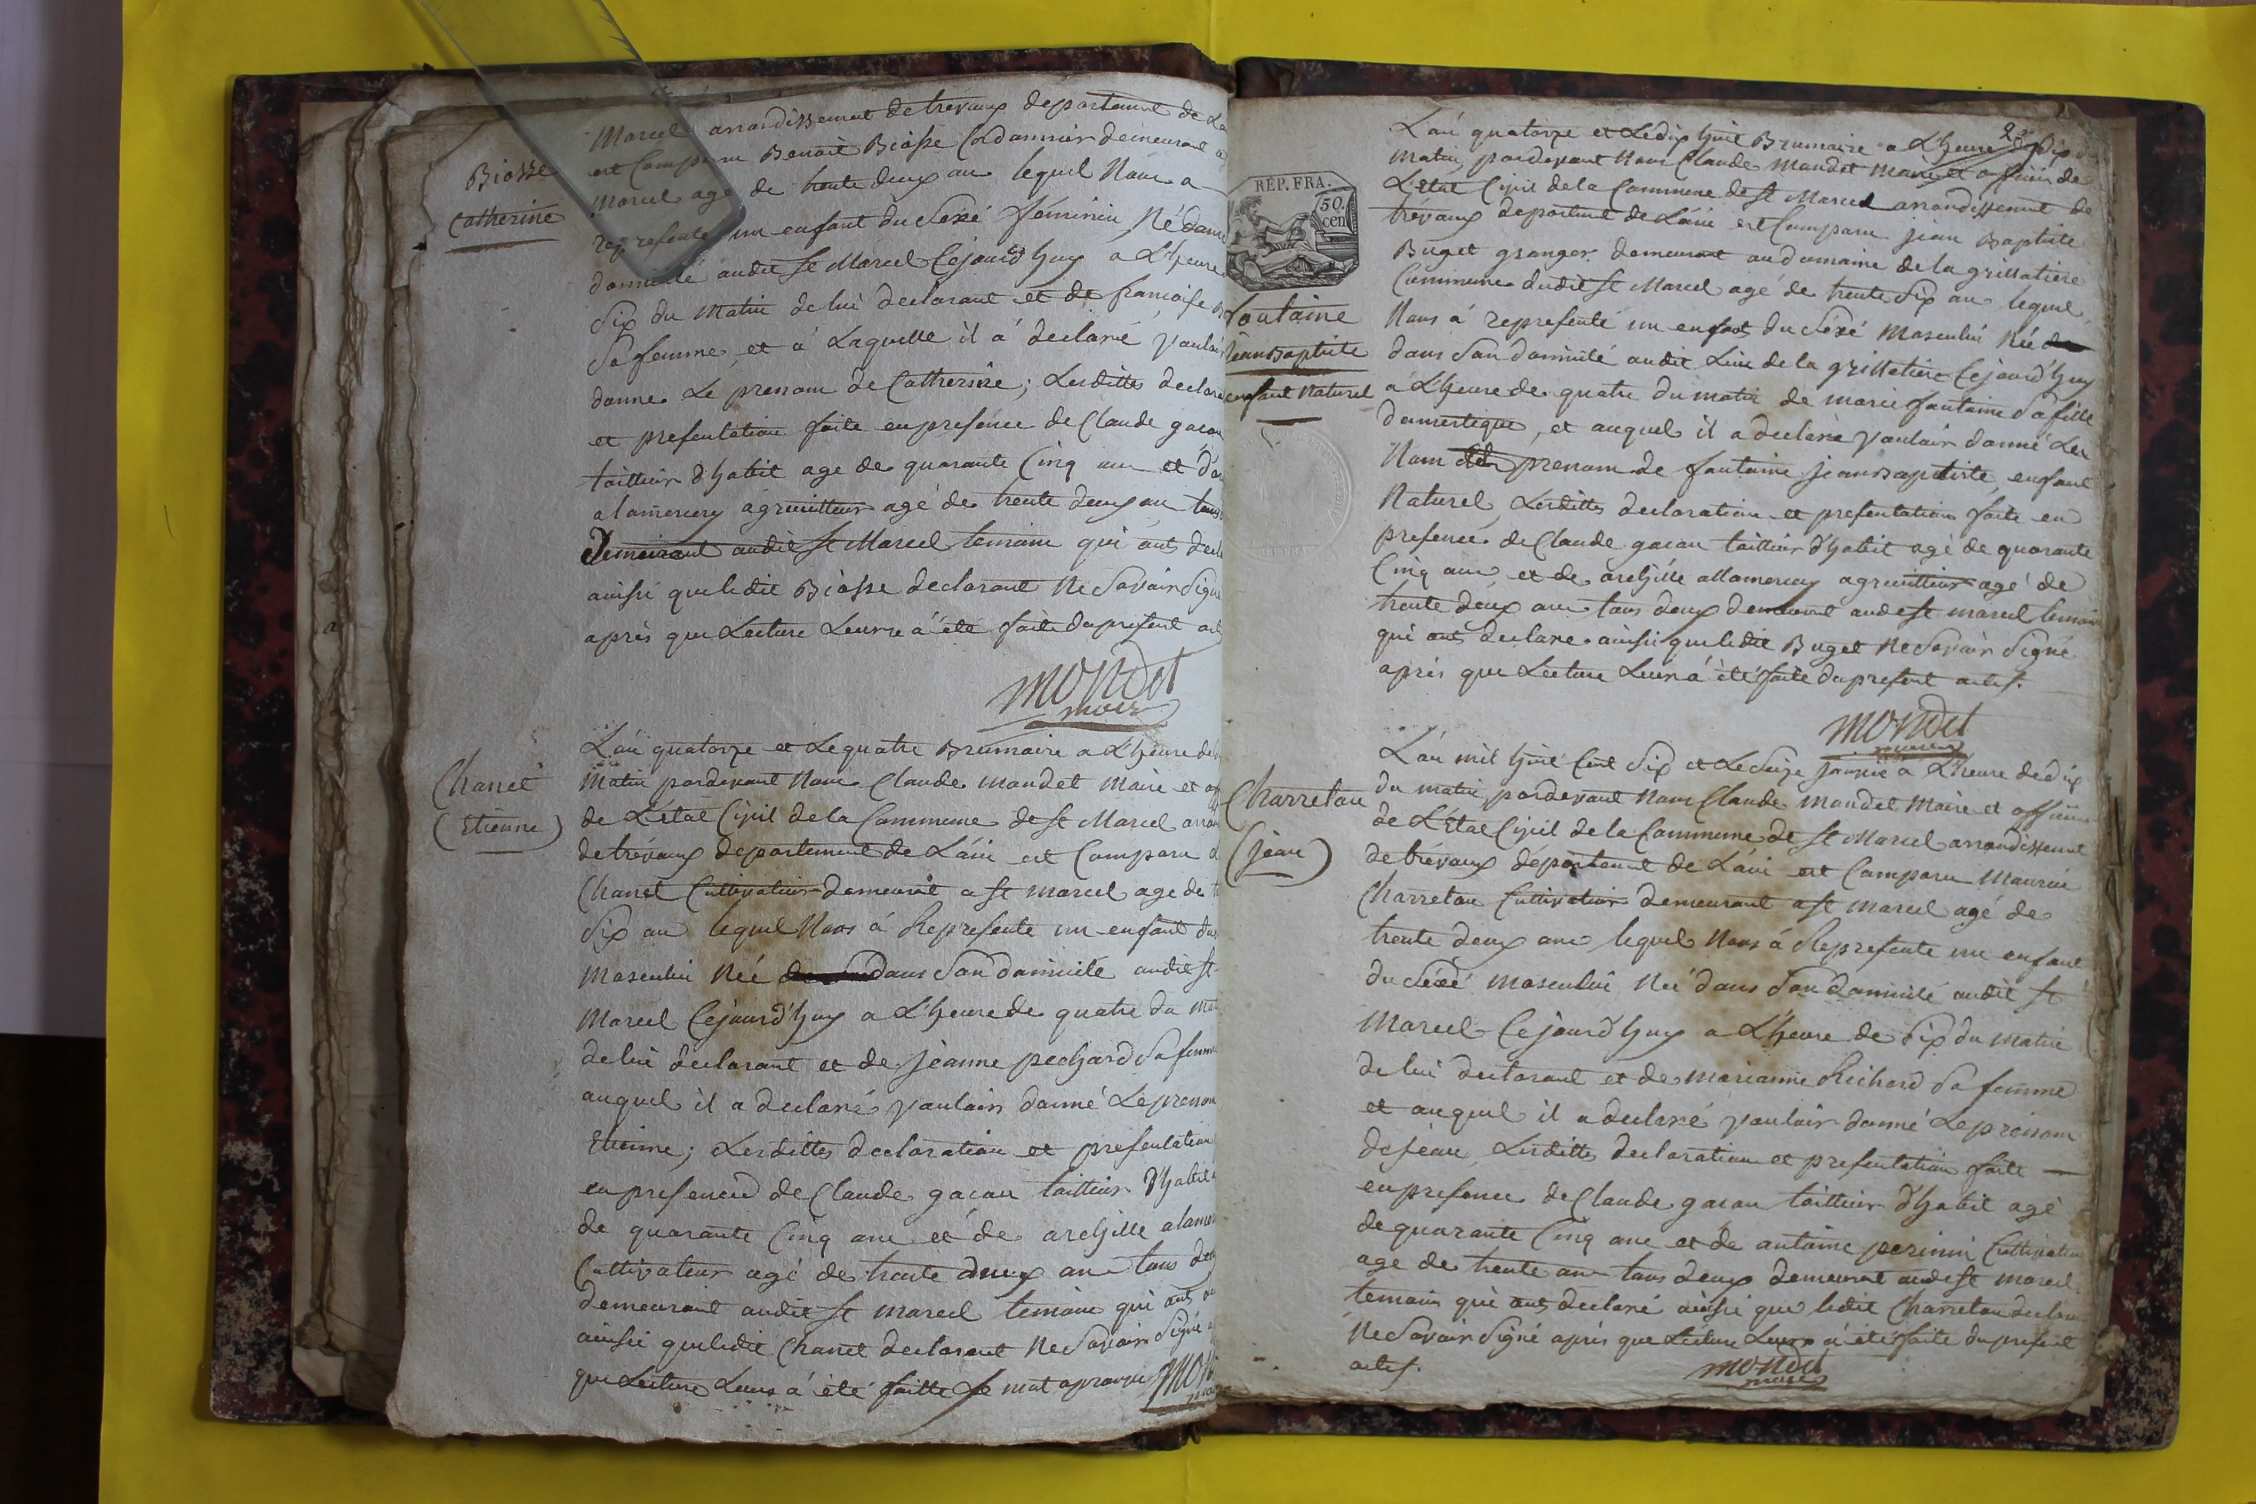 Biosse
Catherine
Marcel arrondissement de trevoux departement de La
est Comparu Benoit Biosse Cordonnier demeurant a
Marcel agé de trente deux an lequel Nous a
represente un enfant du Sexé féminin Né dans
domicille audit St Marcel Cejourd'huy a L'heure
Six du Matin de lui declarant et de françoise
Sa femme, et a Laquelle il a declaré vouloir
donner Le prenom de Catherine; Lesdittes declara
et presentation faite en presence de Claude gacon
taillieur d'habit age de quarante Cinq an et d'ar
alamercery agricultteur agé de trente deux an tous
Demeurant audit St Marcel temoins qui ont decla
ainsi que ledit Biosse declarant Ne Savoir Signé
après que Lecture Leurs a été faite du present act
mondet
maire
Chanet
(Etienne)
L'an quatorze et Le quatre Brumaire a L'heure de
Matin pardevant Nous Claude mondet Maire et off
de L'état Civil de la Commune de St Marcel arron
de trévoux departement de L'ain est Comparu
Chanet Cultivateur demeurant a St marcel age de
Six an lequel Nous á Represente un enfant du
masculin Née dans Son domicile audit St
Marcel Cejourd'huy a L'heure de quatre du ma
de lui declarant et de jeanne pechard Sa femme
auquel il a declaré vouloir donné Le prenom
Etienne; Lesdittes declaration et presentation
en presence de Claude gacon taillieur d'habit
de quarante Cinq ans et de archille alamer
Cultivateur agé de trente deux an tous deux
demeurant audit St marcel temoins qui ont
ainsi que ledit Chanet declarant Ne Savoir Signé
que Lecture Leurs a été faitte Le mot aprouvé
mon
2
RÉP. FRA.
50.
cen
fontaine
jean Baptiste
enfant Naturel
L'an quatorze et Le dix huit Brumaire a L'heure de Dix
Matin, pardevant Nous Claude Mondet Maire et officier de
L'état Civil de la Commune de St Marcel arrondissement de
trévoux departement de L'ain est Comparu jean Baptiste
Buget granger demeurant au domaine de la grillatiere
Commune dudit St Marcel agé de trente Six an lequel
Nous á representé un enfant du Séxé Masculin Née
dans Son domicile audit Lieu de la grilletiere Cejourd'huy
a L'heure de quatre du matin de marie fontaine Sa fille
domestique, et auquel il a declaré vouloir donné Les
Nom et prenom de fontaine jean Baptiste, enfant
Naturel, Lesdittes declaration et presentation faite en
presence de Claude gacon taillieur d'habit agé de quarante
Cinq ans et de archille allamercery agricultteur agé de
trente deux ans tous deux demeurant audit St marcel temoin
qui ont declare ainsi que ledit Buget Ne Savoir Signé
après que Lecture Leurs a été faite du present actes.
mondet
maire
Charreton
(jean)
L'an mil huit Cent Six et Le Seize janvié a L'heure de dix
du matin pardevant Nous Claude mondet Maire et officier
de L'état Civil de la Commune de St Marcel arrondissement
de trévoux département de L'ain est Comparu Maurice
Charreton Cultivateur demeurant a St marcel agé de
trente deux ans, lequel Nous á Represente un enfant
du Séxé masculin Né dans Son domicile audit St
Marcel Cejourd'huy a L'heure de Six du matin
de lui declarant et de marianne Richard Sa femme
et auquel il a declaré vouloir donné Le prenom
de jean Lesdittes declaration et presentation faite
en presence de Claude gacon taillieur d'habit agé
de quarante Cinq ans et de antoine perinin Cultivateur
age de trente an tous deux demeurant audit St marcel
temoin qui ont declaré ainsi que ledit Charreton declarant
Ne Savoir Signé après que Lecture Leurs a été faite du present
actes.
mondet
maire